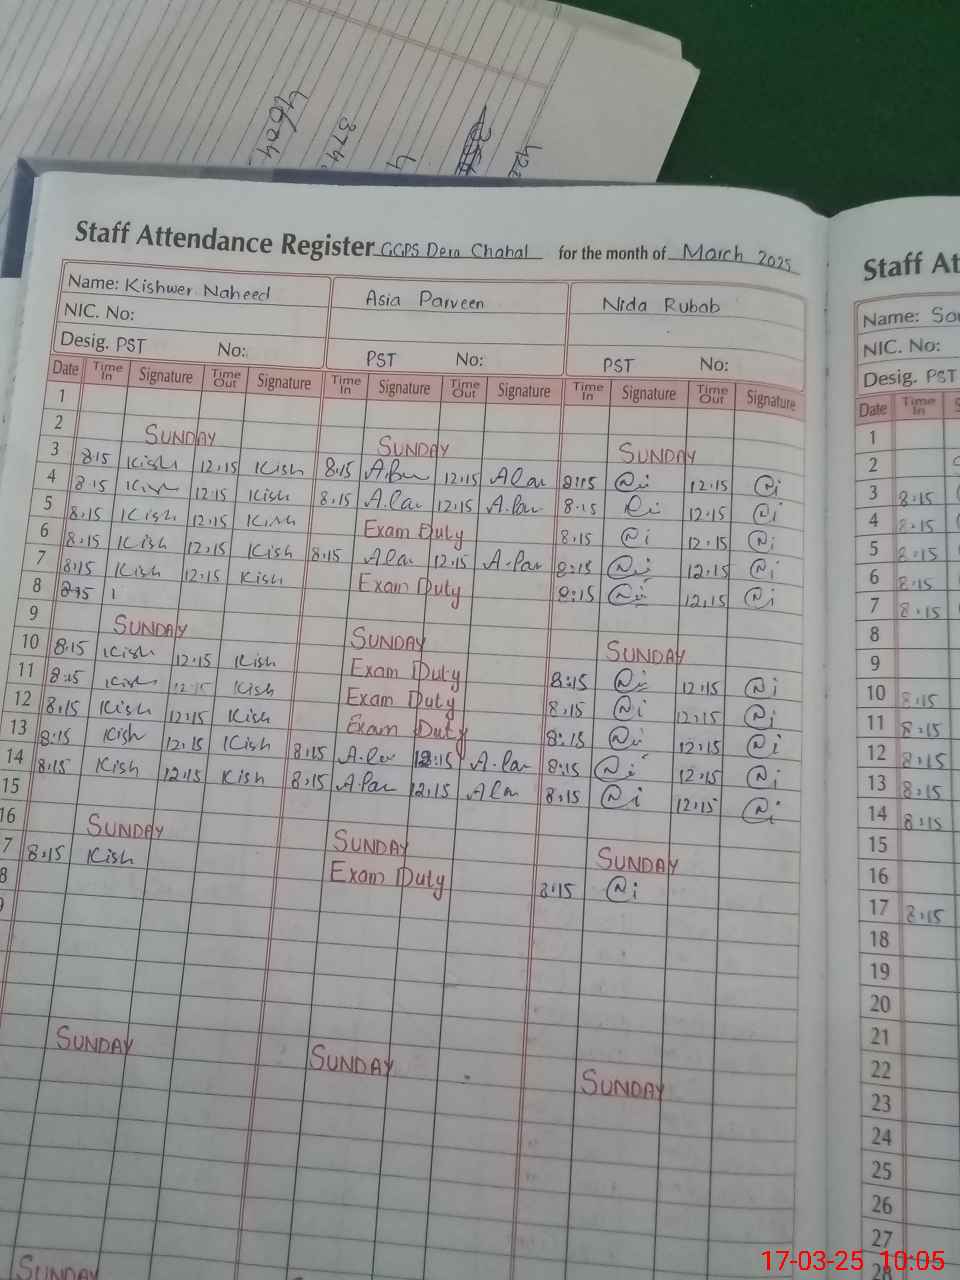 4604
374
Staff Attendance Register GGPS Dera Chahal for the month of March 2025
Name: Kishwer Naheed Asia Parveen Nida Rubab
NIC. No:
Desig. PST No: PST No: PST No:
Date Time In Signature Time Out Signature Time In Signature Time Out Signature Time In Signature Time Out Signature
1
2 SUNDAY SUNDAY SUNDAY
3 8:15 Kish 12:15 Kish 8:15 12:15 8:15 12:15
4 8:15 Kish 12:15 Kish 8:15 12:15 8:15 12:15
5 8:15 Kish 12:15 Kish Exam Duty 8:15 12:15
6 8:15 Kish 12:15 Kish 8:15 12:15 8:15 12:15
7 8:15 Kish 12:15 Kish Exam Duty 8:15 12:15
8
9 SUNDAY SUNDAY SUNDAY
10 8:15 Kish 12:15 Kish Exam Duty 8:15 12:15
11 8:15 Kish 12:15 Kish Exam Duty 8:15 12:15
12 8:15 Kish 12:15 Kish Exam Duty 8:15 12:15
13 8:15 Kish 12:15 Kish 8:15 12:15 8:15 12:15
14 8:15 Kish 12:15 Kish 8:15 12:15 8:15 12:15
15
16 SUNDAY SUNDAY SUNDAY
7 8:15 Kish Exam Duty 8:15
8
SUNDAY SUNDAY SUNDAY
SUNDAY
Staff At
Name: So
NIC. No:
Desig. PST
Date Time In
1
2
3 8:15
4 8:15
5 8:15
6 8:15
7 8:15
8
9
10 8:15
11 8:15
12 8:15
13 8:15
14 8:15
15
16
17 8:15
18
19
20
21
22
23
24
25
26
27
28
17-03-25 10:05